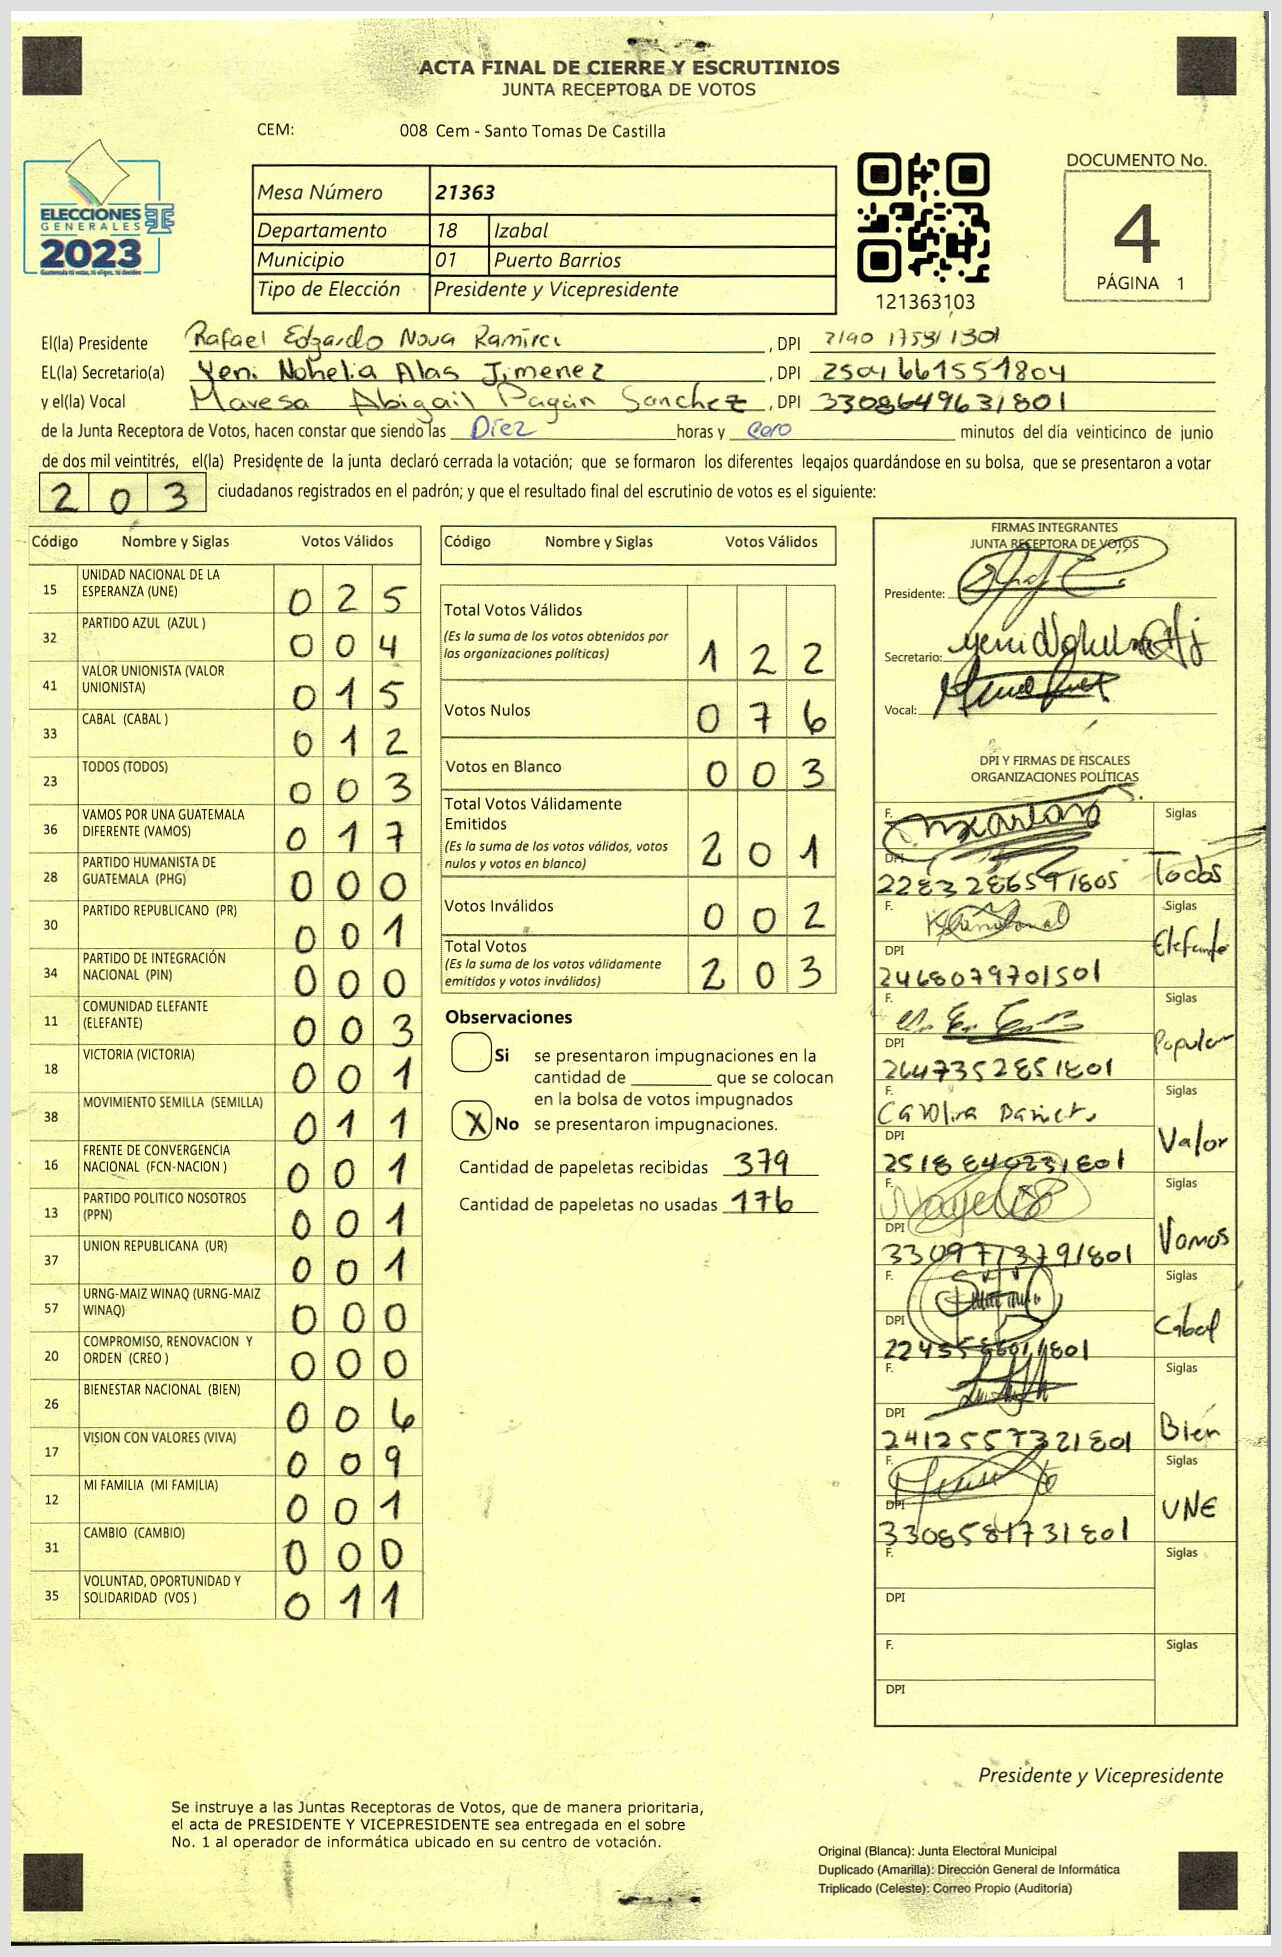 ACTA FINAL DE CIERRE Y ESCRUTINIOS
JUNTA RECEPTORA DE VOTOS
CEM: 008 Cem - Santo Tomas De Castilla
ELECCIONES
GENERALES
2023
Mesa Número 21363
Departamento 18 Izabal
Municipio 01 Puerto Barrios
Tipo de Elección Presidente y Vicepresidente
121363103
DOCUMENTO No.
4
PÁGINA 1
El(la) Presidente Rafael Edgardo Nova Ramirez, DPI
EL(la) Secretario(a) Yeni Nohelia Alas Jimenez, DPI 2504661551804
y el(la) Vocal Mavesa Abigail Pagán Sanchez, DPI 3308649631801
de la Junta Receptora de Votos, hacen constar que siendo las Diez horas y cero minutos del día veinticinco de junio
de dos mil veintitrés, el(la) Presidente de la junta declaró cerrada la votación; que se formaron los diferentes legajos quardándose en su bolsa, que se presentaron a votar
203 ciudadanos registrados en el padrón; y que el resultado final del escrutinio de votos es el siguiente:
Código Nombre y Siglas Votos Válidos
15 UNIDAD NACIONAL DE LA ESPERANZA (UNE) 025
32 PARTIDO AZUL (AZUL ) 004
41 VALOR UNIONISTA (VALOR UNIONISTA) 015
33 CABAL (CABAL ) 012
23 TODOS (TODOS) 003
36 VAMOS POR UNA GUATEMALA DIFERENTE (VAMOS) 017
28 PARTIDO HUMANISTA DE GUATEMALA (PHG) 000
30 PARTIDO REPUBLICANO (PR) 001
34 PARTIDO DE INTEGRACIÓN NACIONAL (PIN) 000
11 COMUNIDAD ELEFANTE (ELEFANTE) 003
18 VICTORIA (VICTORIA) 001
38 MOVIMIENTO SEMILLA (SEMILLA) 011
16 FRENTE DE CONVERGENCIA NACIONAL (FCN-NACION ) 001
13 PARTIDO POLITICO NOSOTROS (PPN) 001
37 UNION REPUBLICANA (UR) 001
57 URNG-MAIZ WINAQ (URNG-MAIZ WINAQ) 000
20 COMPROMISO, RENOVACION Y ORDEN (CREO ) 000
26 BIENESTAR NACIONAL (BIEN) 006
17 VISION CON VALORES (VIVA) 009
12 MI FAMILIA (MI FAMILIA) 001
31 CAMBIO (CAMBIO) 000
35 VOLUNTAD, OPORTUNIDAD Y SOLIDARIDAD (VOS ) 011
Código Nombre y Siglas Votos Válidos
Total Votos Válidos
(Es la suma de los votos obtenidos por las organizaciones políticas) 122
Votos Nulos 076
Votos en Blanco 003
Total Votos Válidamente Emitidos
(Es la suma de los votos válidos, votos nulos y votos en blanco) 201
Votos Inválidos 002
Total Votos
(Es la suma de los votos válidamente emitidos y votos inválidos) 203
Observaciones
Si se presentaron impugnaciones en la
cantidad de ________ que se colocan
en la bolsa de votos impugnados
X No se presentaron impugnaciones.
Cantidad de papeletas recibidas 379
Cantidad de papeletas no usadas 176
FIRMAS INTEGRANTES
JUNTA RECEPTORA DE VOTOS
Presidente:
Secretario:
Vocal:
DPI Y FIRMAS DE FISCALES
ORGANIZACIONES POLÍTICAS
F. Siglas
DPI 2283286591805 Todos
F. Siglas
DPI 2468079701501 Elefante
F. Siglas
DPI 2647352851801 Popular
F. Carolina Siglas
DPI 2518840231801 Valor
F. Siglas
DPI 3309713791801 Vamos
F. Siglas
DPI Cabal
F. Siglas
DPI 2412557321801 Bien
F. Siglas
DPI 3308581731801 UNE
F. Siglas
DPI
F. Siglas
DPI
Presidente y Vicepresidente
Se instruye a las Juntas Receptoras de Votos, que de manera prioritaria,
el acta de PRESIDENTE Y VICEPRESIDENTE sea entregada en el sobre
No. 1 al operador de informática ubicado en su centro de votación.
Original (Blanca): Junta Electoral Municipal
Duplicado (Amarilla): Dirección General de Informática
Triplicado (Celeste): Correo Propio (Auditoría)